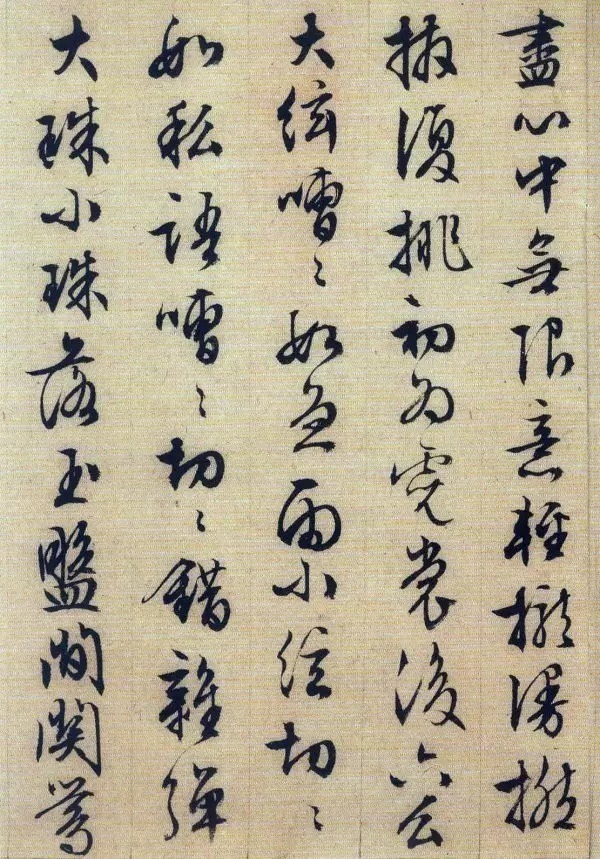 盡心中無限意輕攏漫撚
抹復挑初為霓裳後六么
大絃嘈〻如急雨小絃切〻
如私語嘈〻切〻錯雜彈
大珠小珠落玉盤間関鶯